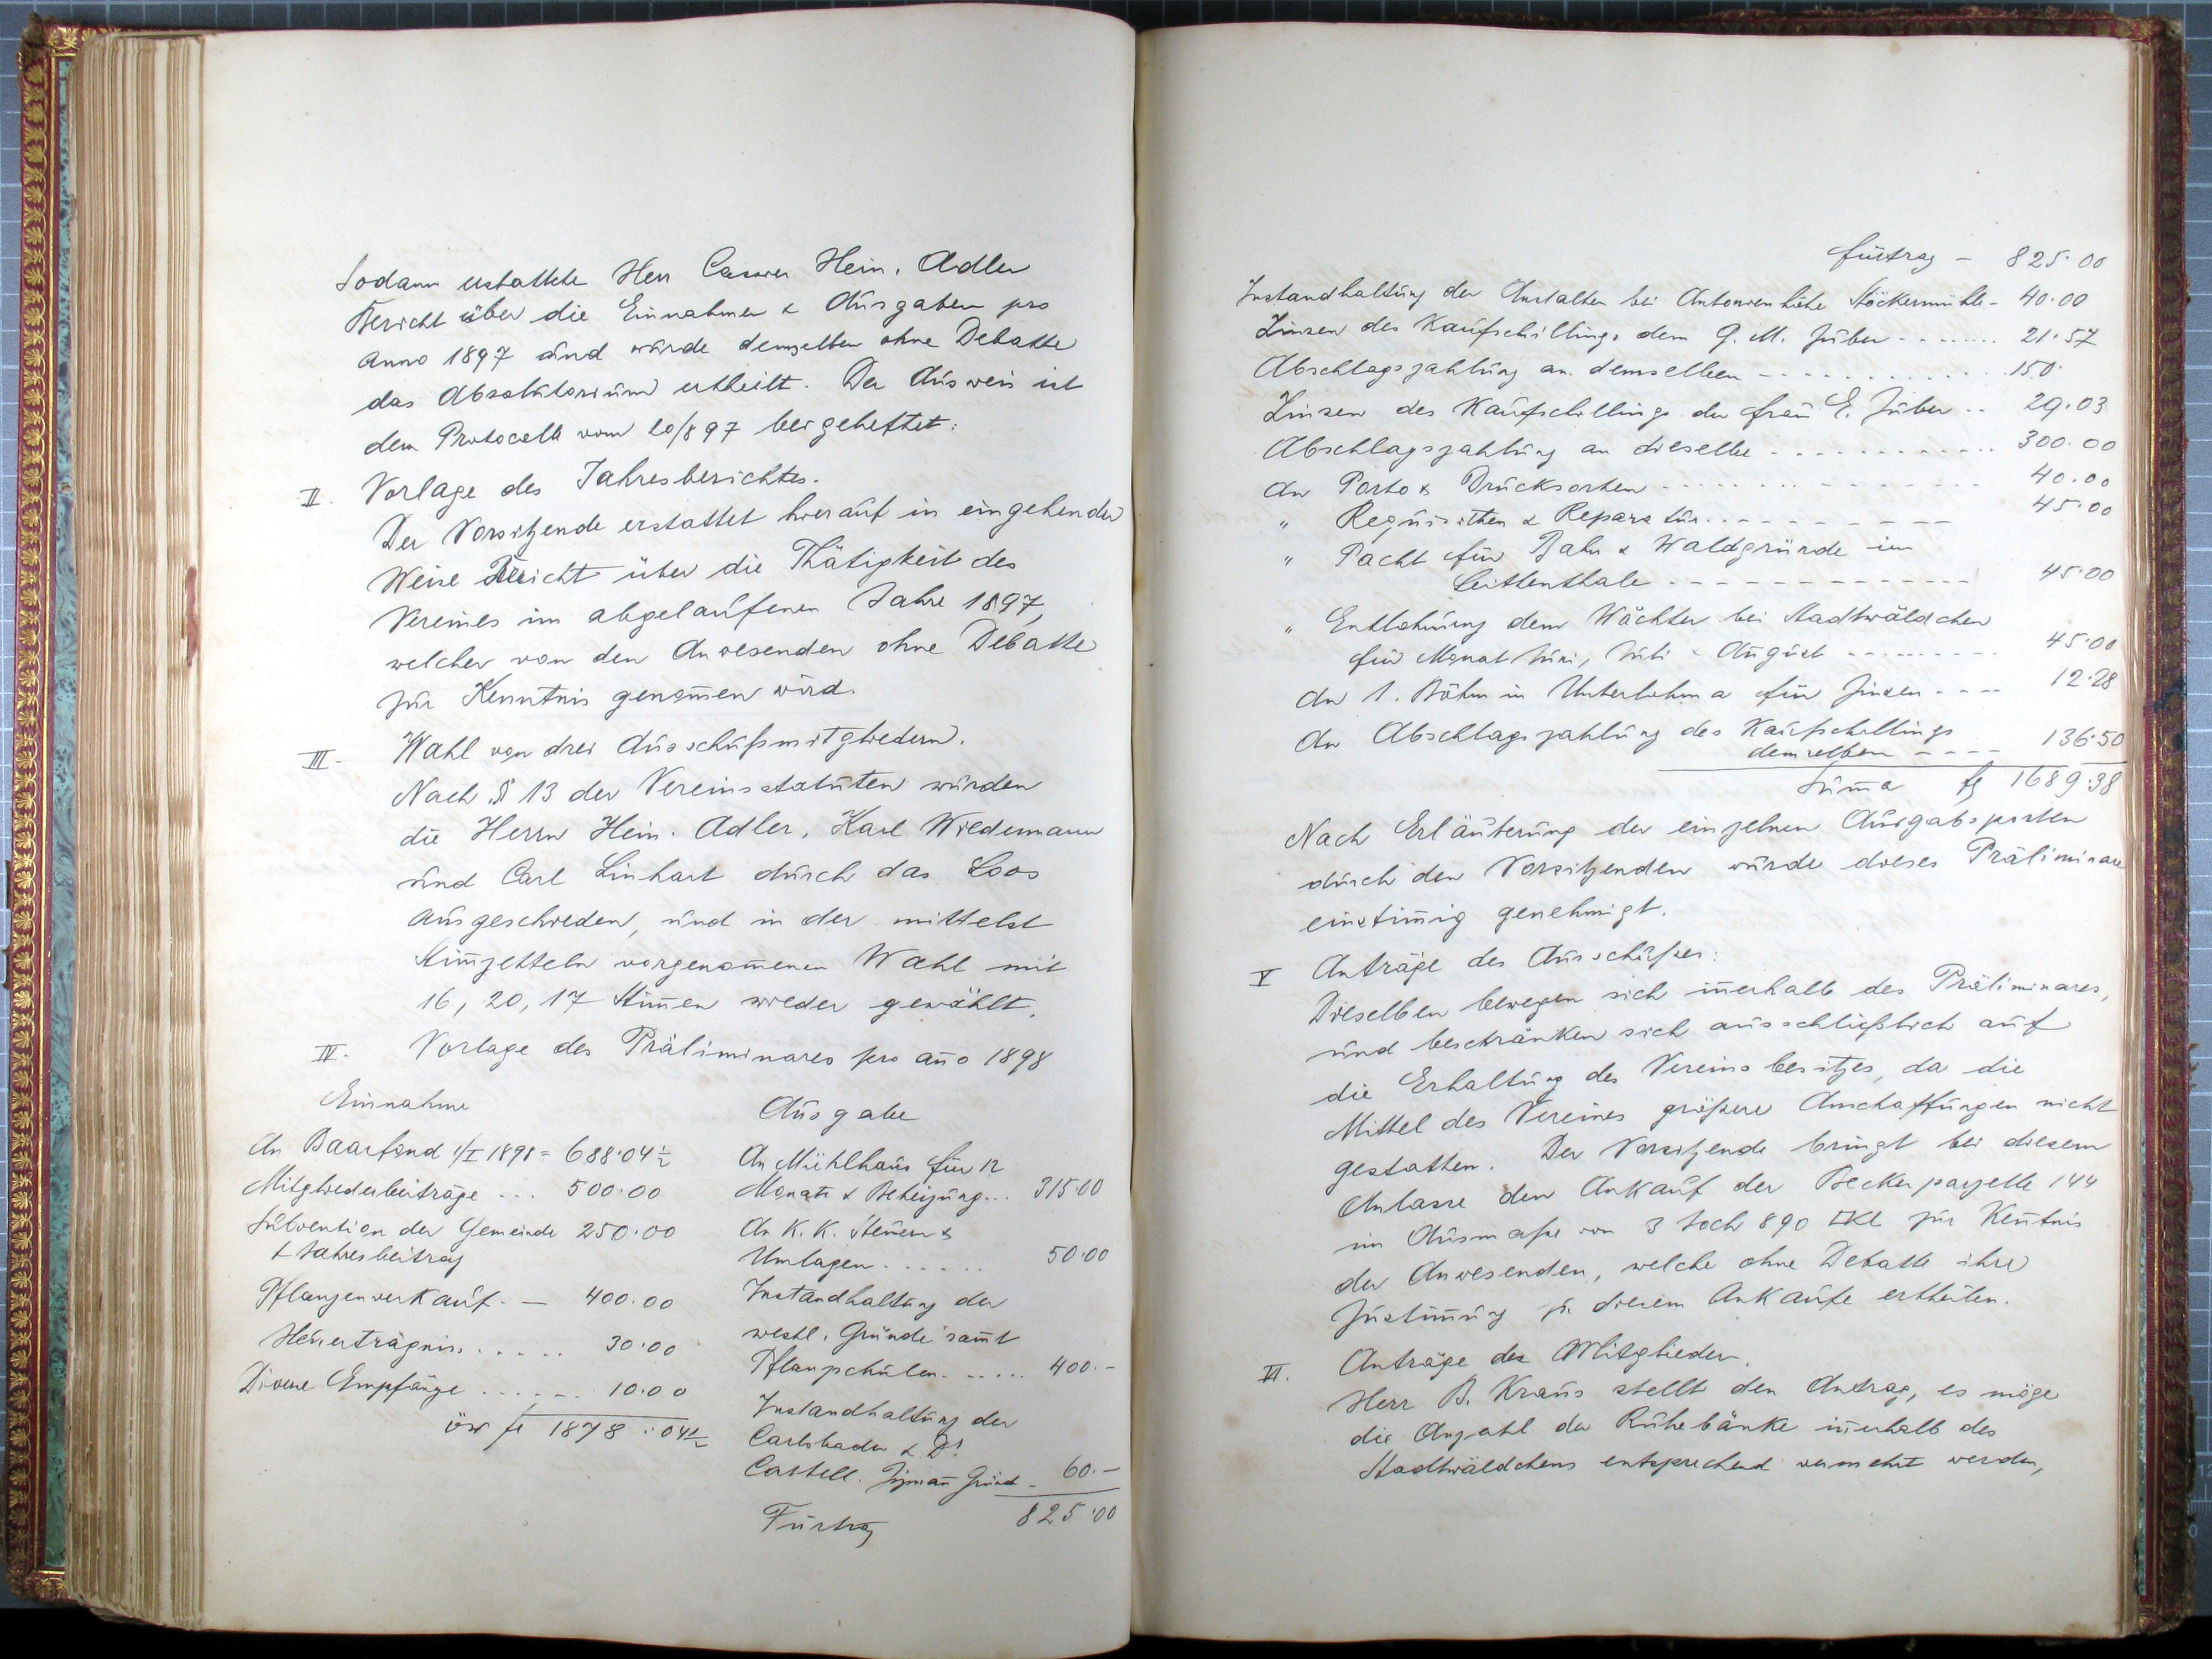 Sodann erstattete Herr Cassier Hein. Adler
Bericht über die Einnahmen & Ausgaben pro
anno 1897 und wurde demselben ohne Debatte
das Absolutorium ertheilt. Der Ausweis ist
dem Protocolle vom 20/897 beigeheftet.
II. Vorlage des Jahresberichtes.
Der Vorsitzende erstattet hierauf in eingehender
Weise Bericht über die Thätigkeit des
Vereines im abgelaufenen Jahre 1897,
welcher von den Anwesenden ohne Debatte
zur Kenntnis genom̄en wird.
III. Wahl von drei Ausschußmitgliedern.
Nach § 13 der Vereinsstatuten wurden
die Herrn Hein. Adler, Karl Wiedemann
und Carl Linhart durch das Loos
ausgeschieden, und in der mittelst
Stim̄zetteln vorgenom̄enen Wahl mit
16, 20, 17 Stim̄en wieder gewählt.
IV. Vorlage des Präliminares pro an̄o 1898
Einnahme
An Baarfond 1/I 1898 = 688·04½
Mitgliederbeiträge ... 500·00
Subvention der Gemeinde 250·00
& Jahresbeitrag
Pflanzenverkauf. — 400·00
Heuerträgnis ..... 30·00
Diverse Empfänge ...... 10·00
öw fl 1878·04½
Ausgabe
An Mühlhaus für 12
Monate & Beheizung... 315·00
An K. K. Steuern &
Umlagen...... 50·00
Instandhaltung der
westl. Gründe sam̄t
Pflanzschulen...... 400.-
Instandhaltung der
Carlsbader & Dr.
Castell. Grund - 60.-
Fürtrag 825·00
Fürtrag - 825·00
Instandhaltung der Anstalten bei Antonienhöhe Stöckermühle - 40·00
Zinsen des Kaufschillings dem G. M. Huber ------- 21·57
Abschlagszahlung an demselben ----------- 150·
Zinsen des Kaufschillings der Frau E. Huber .. 29·03
Abschlagszahlung an dieselbe ------------ 300·00
An Porto & Drucksorten ------------- 40·00
" Requisiten & Reparatur. --------- 45·00
" Pacht für Bahn & Waldgründe im
Leittenthale -------------- 45·00
" Entlohnung dem Wächter bei Stadtwäldchen
für Monat Juni, Juli & August --------- 45·00
An J. Böhm in Unterlohma für Zinsen ---- 12·28
An Abschlagszahlung des Kaufschillings
demselben ---- 136·50
Sum̄a fl 1689·38
Nach Erläuterung der einzelnen Ausgabsposten
durch den Vorsitzenden wurde dieses Präliminare
einstim̄ig genehmigt.
V Anträge des Ausschußes:
Dieselben bewegen sich in̄erhalb des Präliminares,
und beschränken sich ausschließlich auf
die Erhaltung des Vereinsbesitzes, da die
Mittel des Vereines größere Anschaffungen nicht
gestatten. Der Vorsitzende bringt bei diesem
Anlasse den Ankauf der Beckerparzelle 144
im Ausmaße von 3 Joch 890 □Kl zur Ken̄tnis
der Anwesenden, welche ohne Debatte ihre
Zustim̄ung zu diesem Ankaufe ertheilen.
VI. Anträge der Mitglieder.
Herr B. Kraus stellt den Antrag, es möge
die Anzahl der Ruhebänke in̄erhalb des
Stadtwäldchens entsprechend vermehrt werden,